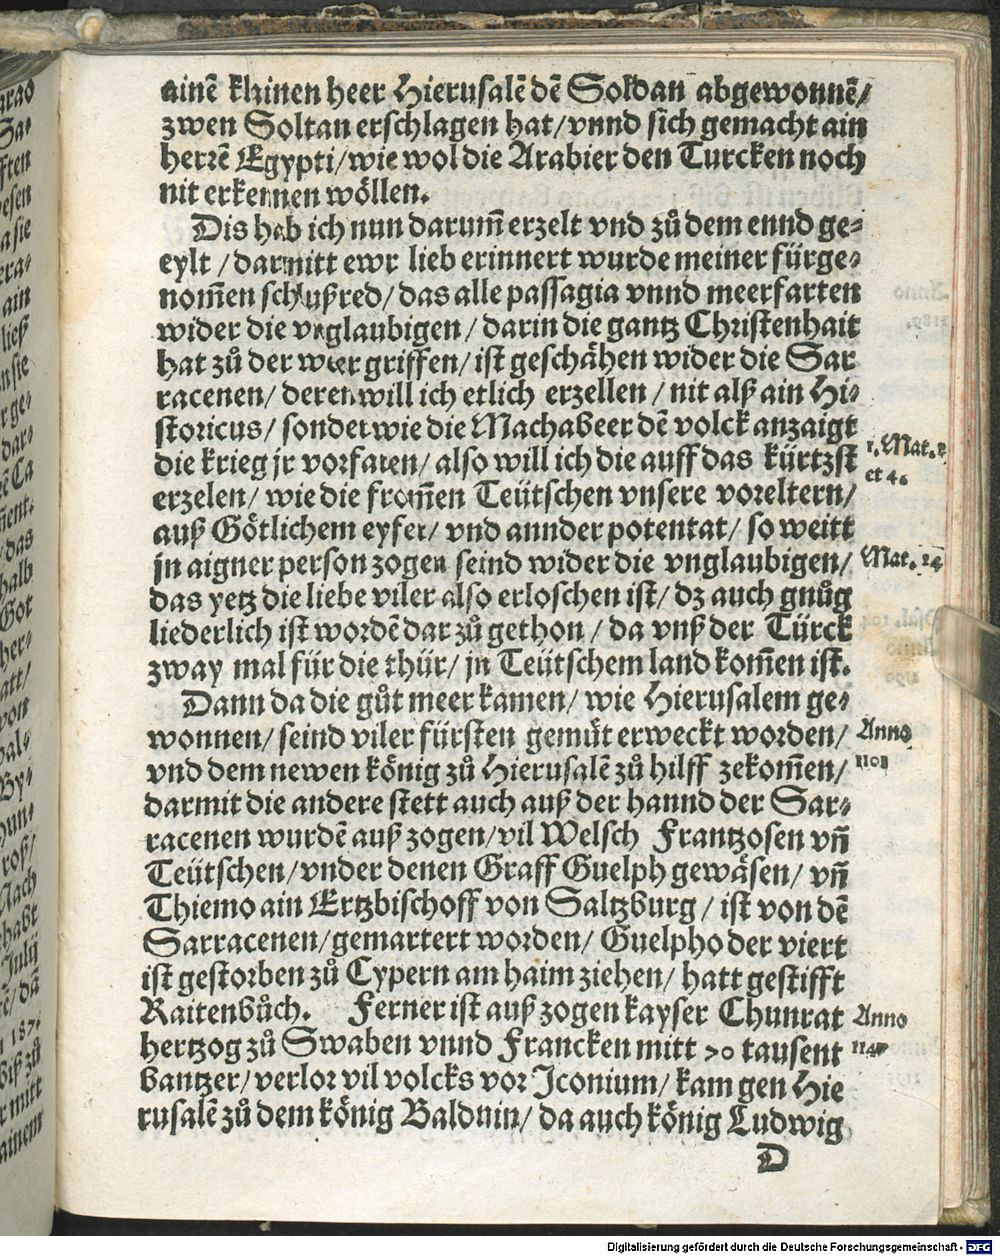 ainẽ khinen heer Hierusalẽ dẽ Soldan abgewonnẽ/
zwen Soltan erschlagen hat/vnnd sich gemacht ain
herrẽ Egypti/wie wol die Arabier den Turcken noch
nit erkennen wöllen.
Dis hab ich nun darum̃ erzelt vnd zů dem ennd ge-
eylt /darmitt ewr lieb erinnert wurde meiner fürge-
nom̃en schlußred/das alle passagia vnnd meerfarten
wider die vnglaubigen/darin die gantz Christenhait
hat zů der weer griffen/ist geschähen wider die Sar
racenen/deren will ich etlich erzellen/nit alß ain Hi-
storicus/sonder wie die Machabeer dẽ volck anzaigt
die krieg jr vorfaren/also will ich die auff das kürtzst
erzelen/wie die from̃en Teütschen vnsere voreltern/
auß Götlichem eyfer/vnd annder potentat/so weitt
jn aigner person zogen seind wider die vnglaubigen/
das yetz die liebe viler also erloschen ist/dz auch gnůg
liederlich ist wordẽ dar zů gethon/da vnß der Türck
zway mal für die thür/jn Teütschem land kom̃en ist.
Dann da die gůt meer kamen/wie Hierusalem ge-
wonnen/seind viler fürsten gemüt erweckt worden/
vnd dem newen könig zů Hierusalẽ zů hilff zekom̃en/
darmit die andere stett auch auß der hannd der Sar-
racenen wurdẽ auß zogen/vil Welsch Frantzosen vñ
Teütschen/vnder denen Graff Guelph gewäsen/vñ
Thiemo ain Ertzbischoff von Saltzburg/ist von dẽ
Sarracenen/gemartert worden/Guelpho der viert
ist gestorben zů Cypern am haim ziehen/hatt gestifft
Raitenbůch. Ferner ist auß zogen kayser Chunrat
hertzog zů Swaben vnnd Francken mitt 70 tausent
bantzer/verlor vil volcks vor Jconium/kam gen Hie
rusalẽ zů dem könig Balduin/da auch könig Ludwig
D
1. Mat. 2
et 4.
Mat. 24
Anno
1101
Anno
1147
Digitalisierung gefördert durch die Deutsche Forschungsgemeinschaft - DFG